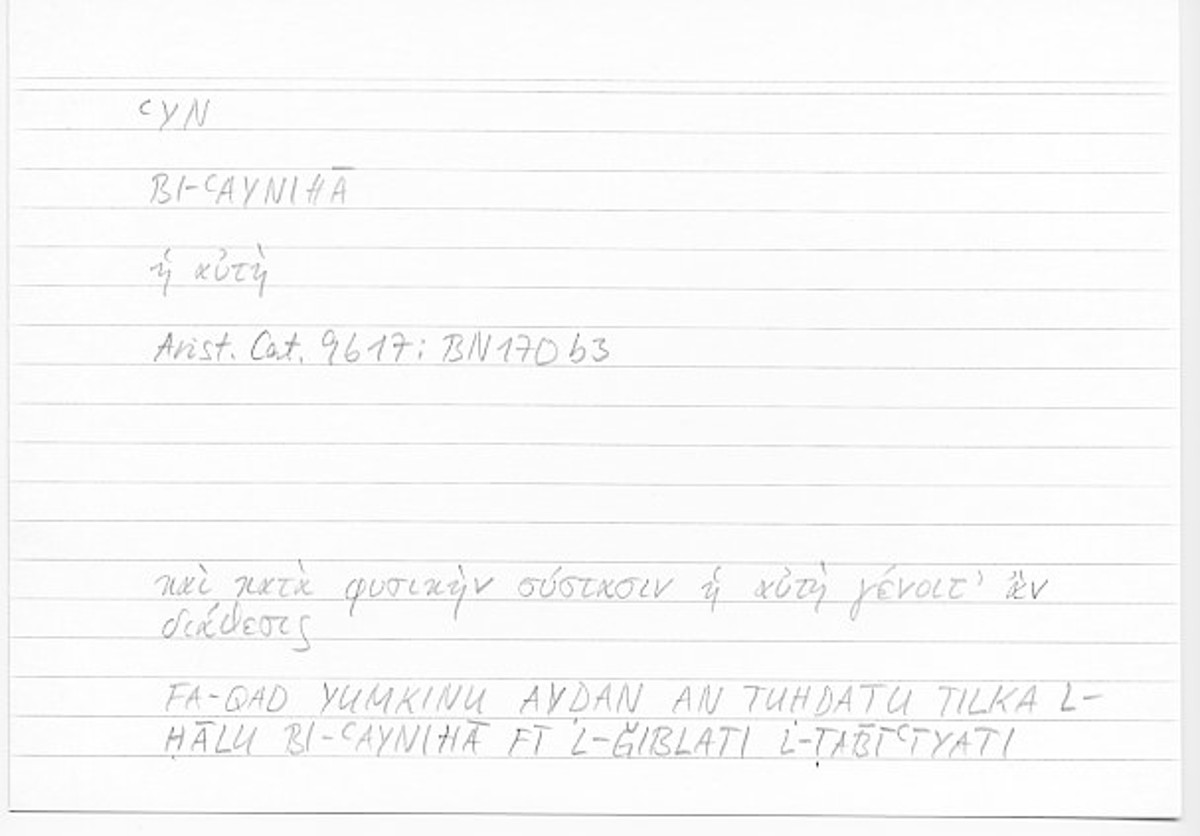 ʿYN
BI-ʿAYNIHĀ
ἡ αὐτὴ
Arist. Cat. 9b17: BN170b3
καὶ κατὰ φυσικὴν σύστασιν ἡ αὐτὴ γένοιτ' ἂν
διάθεσις
FA-QAD YUMKINU AYḌAN AN TUHDATU TILKA L-
ḤĀLU BI-ʿAYNIHĀ FĪ L-ǦIBLATI L-ṬABĪʿĪYATI